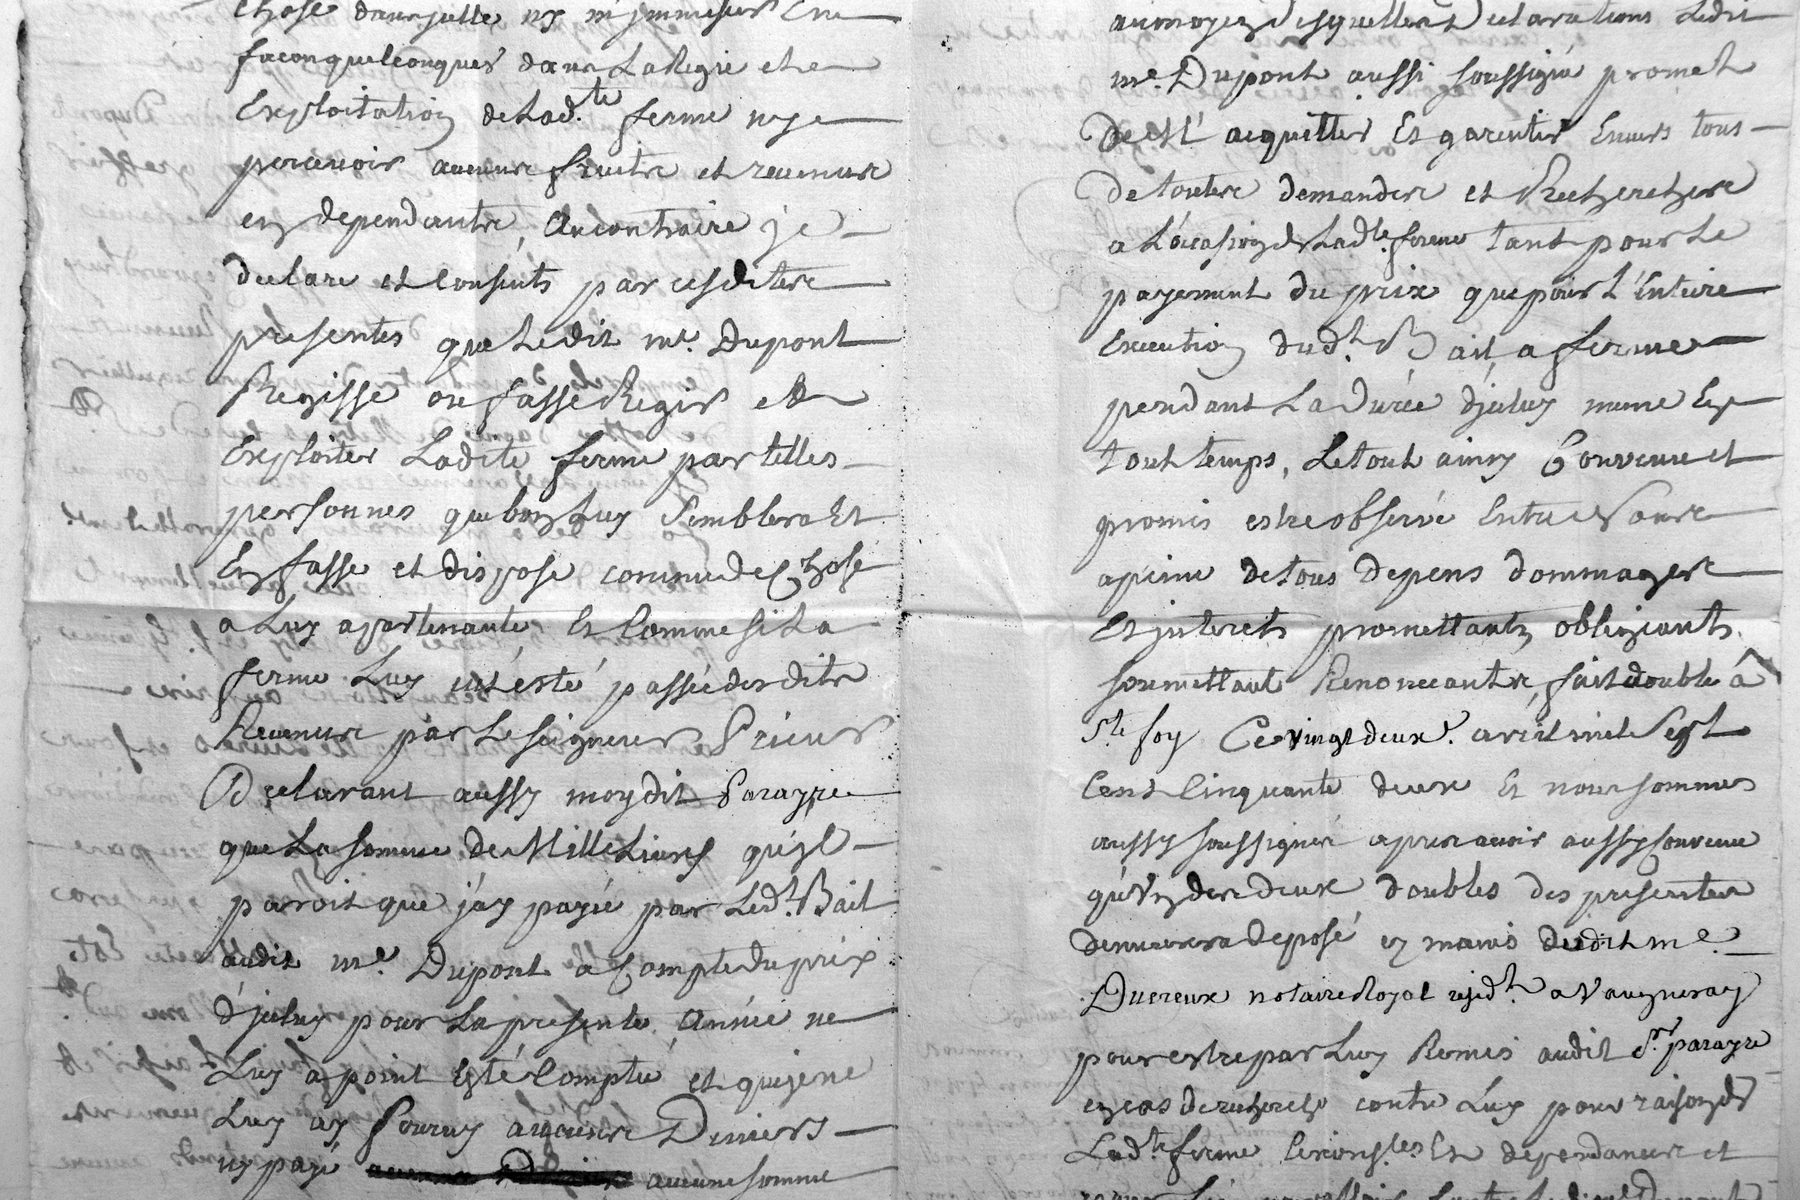 chose dans jcelle ny m'jmmiscer En
faconquelconques dans La Regie et
Exploitation de Lad.te ferme ny
percevoir aucuns fruits et revenus
en dependants, Aucontraire je
declare et Consents par cesdites
presentes que Ledit me. Dupont
Regisse ou fasse Regir et
Exploiter Ladite ferme par telles
personnes que bon Luy Semblera Et
En fasse et dispose comme de Chose
a Luy apartenante Et Comme si La
ferme Luy eut esté passée desdits
Revenus par Le seigneur Prieur
Declarant aussy moydit Parayre
que La somme de Mille Livres qu'jl
paroit que j'ay payée par Led.t Bail
audit me. Dupont a Compte du prix
d'jceluy pour La presente Année ne
Luy a point Esté Comptée et que je ne
Luy ay fourny aucuns Deniers
ny payé aucune somme
aumoyen desquelles Declarations Ledit
me. Dupont aussi soussigné promet
de M'acquitter Et garentir Envers tous
de toutes demandes et Recherches
a L'ocasion de Lad.te ferme tant pour Le
payement du prix que pour L'Entiere
Execution dud.t Bail a ferme
pendant La Durée d'jceluy meme En
tout temps, Le tout ainsy Convenu et
promis estre observé Entre Nous
a peine de tous depens dommages
Et jnterets promettants obligeants
soumettant Renonceants, fait double à
S.te foy Ce vingt deux.e avril mil Sept
Cent Cinquante deux Et nous sommes
aussy soussignés apres avoir aussy Convenu
qu'Un des deux doubles des presentes
demeurera deposé en mains dudit me.
Ducreux notaire Royal resid.t a Vaugneray
pour estre par Luy Remis audit Sr. parayre
en cas de recherche contre Luy pour raison de
Lad.te ferme Circonst.es Et dependances et